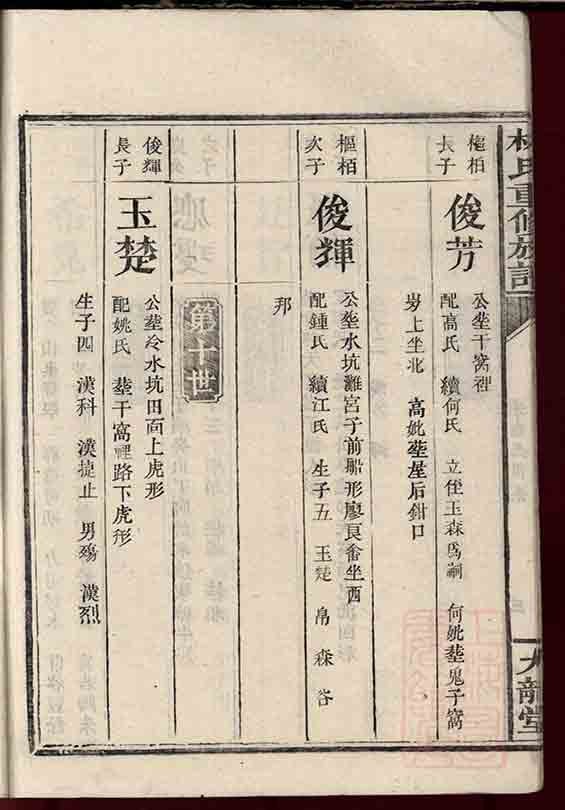 林氏重修族譜
九龍堂
樞柏
長子
俊芳
公塟干窩裡
配高氏 續何氏 立侄玉森爲嗣 何妣塟鬼子窩
歹上坐北 高妣塟屋后鉗口
樞柏
次子
俊輝
公塟水坑離宮子前船形廖良畬坐西
配鍾氏 續江氏 生子五 玉楚 帛 森 谷
邦
第十世
俊輝
長子
玉楚
公塟冷水坑田面上虎形
配姚氏 塟干窩裡路下虎形
生子四 漢科 漢捷止 男殤 漢烈